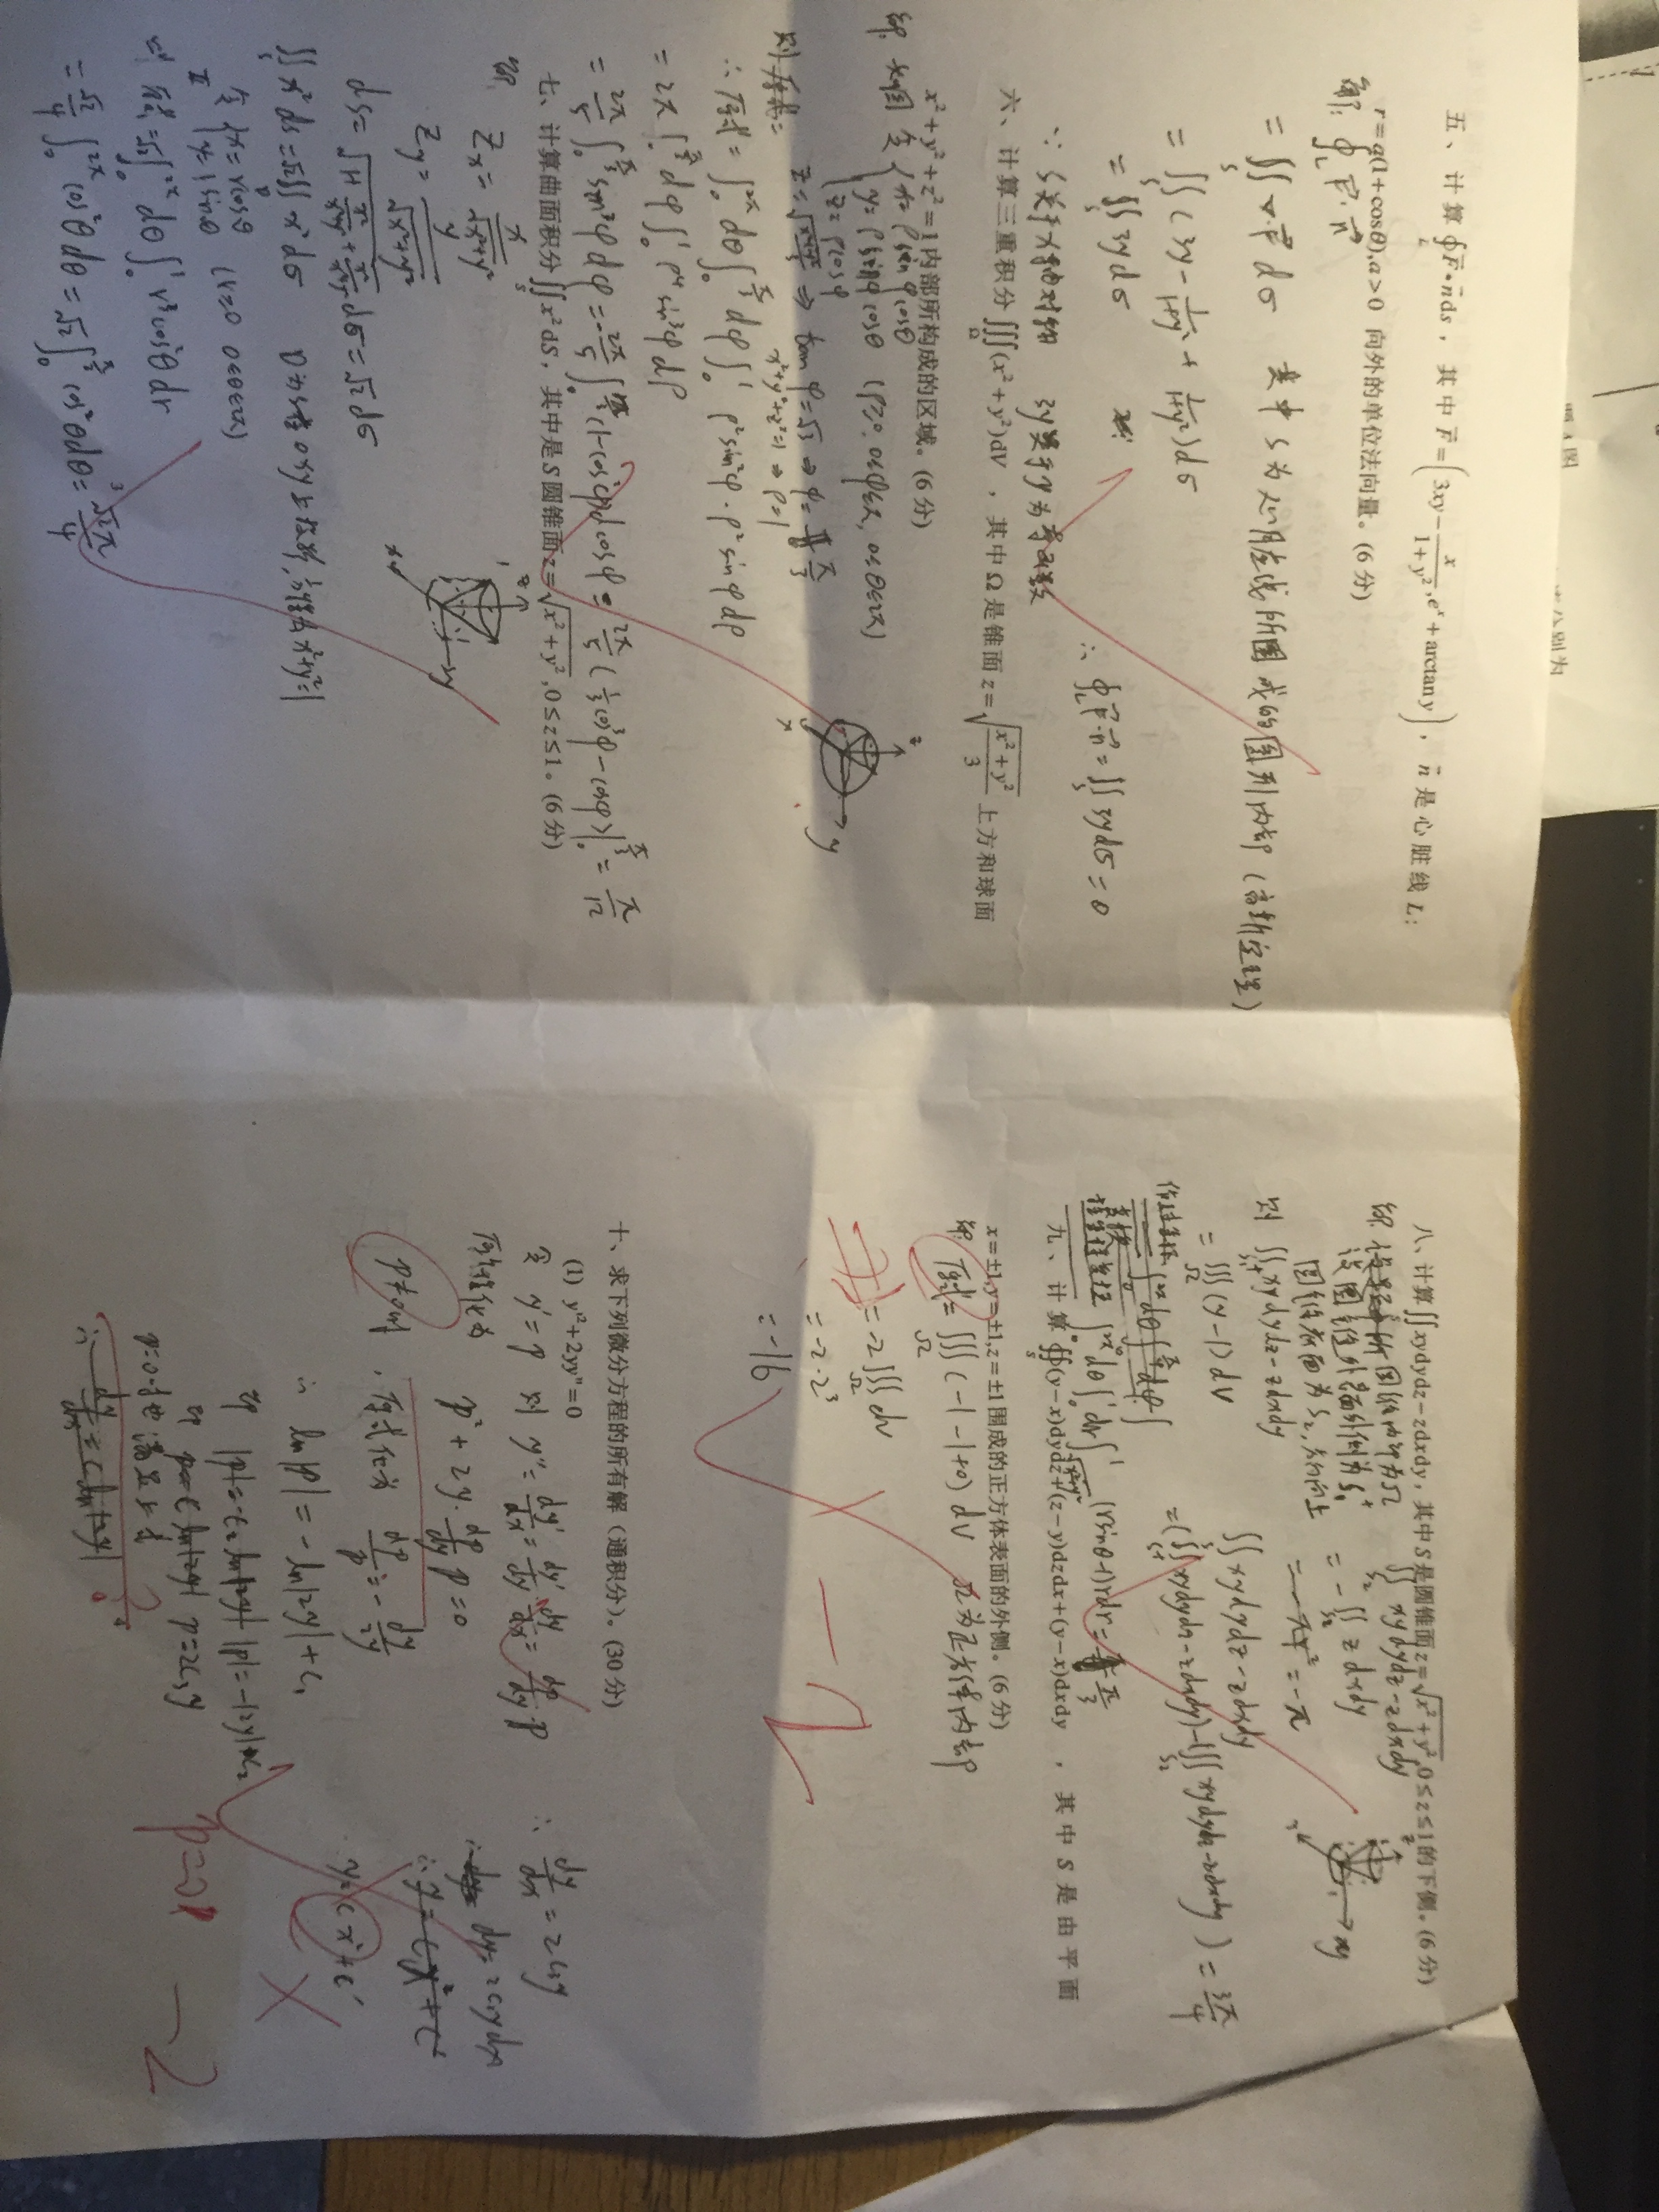 题A图
分别为
五、计算∮_L F⃗•n⃗ds，其中F⃗=(3xy−x/(1+y²),eˣ+arctan y)，n⃗是心脏线L:
r=a(1+cosθ),a>0 向外的单位法向量。(6分)
解: ∮_L F⃗·n⃗
=∬_S ∇·F⃗ dσ 其中S为心脏线所围成的图形内部(高斯定理)
=∬_S (3y−1/(1+y²)+1/(1+y²))dσ
=∬_S 3ydσ
∵ S关于x轴对称 3y关于y为奇函数
∴ ∮_L F⃗·n⃗=∬_S 3ydσ=0
六、计算三重积分∭_Ω(x²+y²)dV，其中Ω是锥面z=√((x²+y²)/3)上方和球面
x²+y²+z²=1内部所构成的区域。(6分)
解. 如图 令 x=ρsinφcosθ
y=ρsinφcosθ (ρ≥0, 0≤φ≤π, 0≤θ≤2π)
z=ρcosφ
z=√((x²+y²)/3) ⇒ tanφ=√3 ⇒ φ=π/3
x²+y²+z²=1 ⇒ ρ=1
则 原式=
∴ 原式=∫₀^{2π}dθ∫₀^{π/3}dφ∫₀¹ρ²sin²φ·ρ²sinφdρ
=2π∫₀^{π/3}dφ∫₀¹ρ⁴sin³φdρ
=2π/5∫₀^{π/3}sin³φdφ=−2π/5∫₀^{π/3}(1−cos²φ)dcosφ=2π/5(1/3cos³φ−cosφ)|₀^{π/3}=π/12
z
y
x
七、计算曲面积分∬_S x²dS，其中是S圆锥面z=√(x²+y²),0≤z≤1。(6分)
解 Zx=x/√(x²+y²)
Zy=y/√(x²+y²)
dS=√(1+x²/(x²+y²)+y²/(x²+y²))dσ=√2dσ
∬_S x²dS=√2∬_D x²dσ D为S在Oxy上投影,方程为x²+y²=1
令 x=rcosθ (r≥0 0≤θ≤2π)
y=rsinθ
原式=√2∫₀^{2π}dθ∫₀¹r³cos²θdr
=√2/4∫₀^{2π}cos²θdθ=√2∫₀^{π/2}cos²θdθ=√2π/4
八、计算∬_S xydydz−zdxdy，其中S是圆锥面z=√(x²+y²),0≤z≤1的下侧。(6分)
解. 圆锥内部为Ω
设圆锥外表面外侧为S₁⁺
圆锥底面为S₂,方向向上
则 ∬_{S₁⁺}xydydz−zdxdy
=∭_Ω(y−1)dV
∫₀^{2π}dθ∫₀^{π/4}dφ∫
∫₀^{2π}dθ∫₀¹dr∫_{√(x²+y²)}¹(rsinθ−1)rdr=π/3
∬_{S₂} xydydz−zdxdy
=−∬_{S₂} zdxdy
=−πr²=−π
∬_S xydydz−zdxdy
=(∬_{S⁺}xydydz−zdxdy)−(∬_{S₂}xydydz−zdxdy)=3π/4
z
xy
九、计算∯_S(y−x)dydz+(z−y)dzdx+(y−x)dxdy，其中S是由平面
x=±1,y=±1,z=±1围成的正方体表面的外侧。(6分)
解. 原式=∭_Ω(−1−1+0)dV Ω为正方体内部
=−2∭_Ω dV
=−2·2³
=−16
−2
十、求下列微分方程的所有解（通积分）。(30分)
(1) y'²+2yy''=0
令 y'=p 则 y''=dy'/dx=dy'/dy·dy/dx=dp/dy·p
原方程化为 p²+2y·dp/dy p=0
p≠0时，原式化为 dp/p=−dy/2y
∴ ln|p|=−ln|2y|+C₁
即 |p|=−C₂ln|2y| |p|=−|2y|+C₂
即 p=C ln|2y| p=2C₃y
p=0时也满足上式
∴ dy/dx=C ln|2y|
∴ dy/dx=2C₃y
∴ dy dy=2C₃ydx
∴ y=Cx²+C'
y=Cx²+C'
p=0
−2